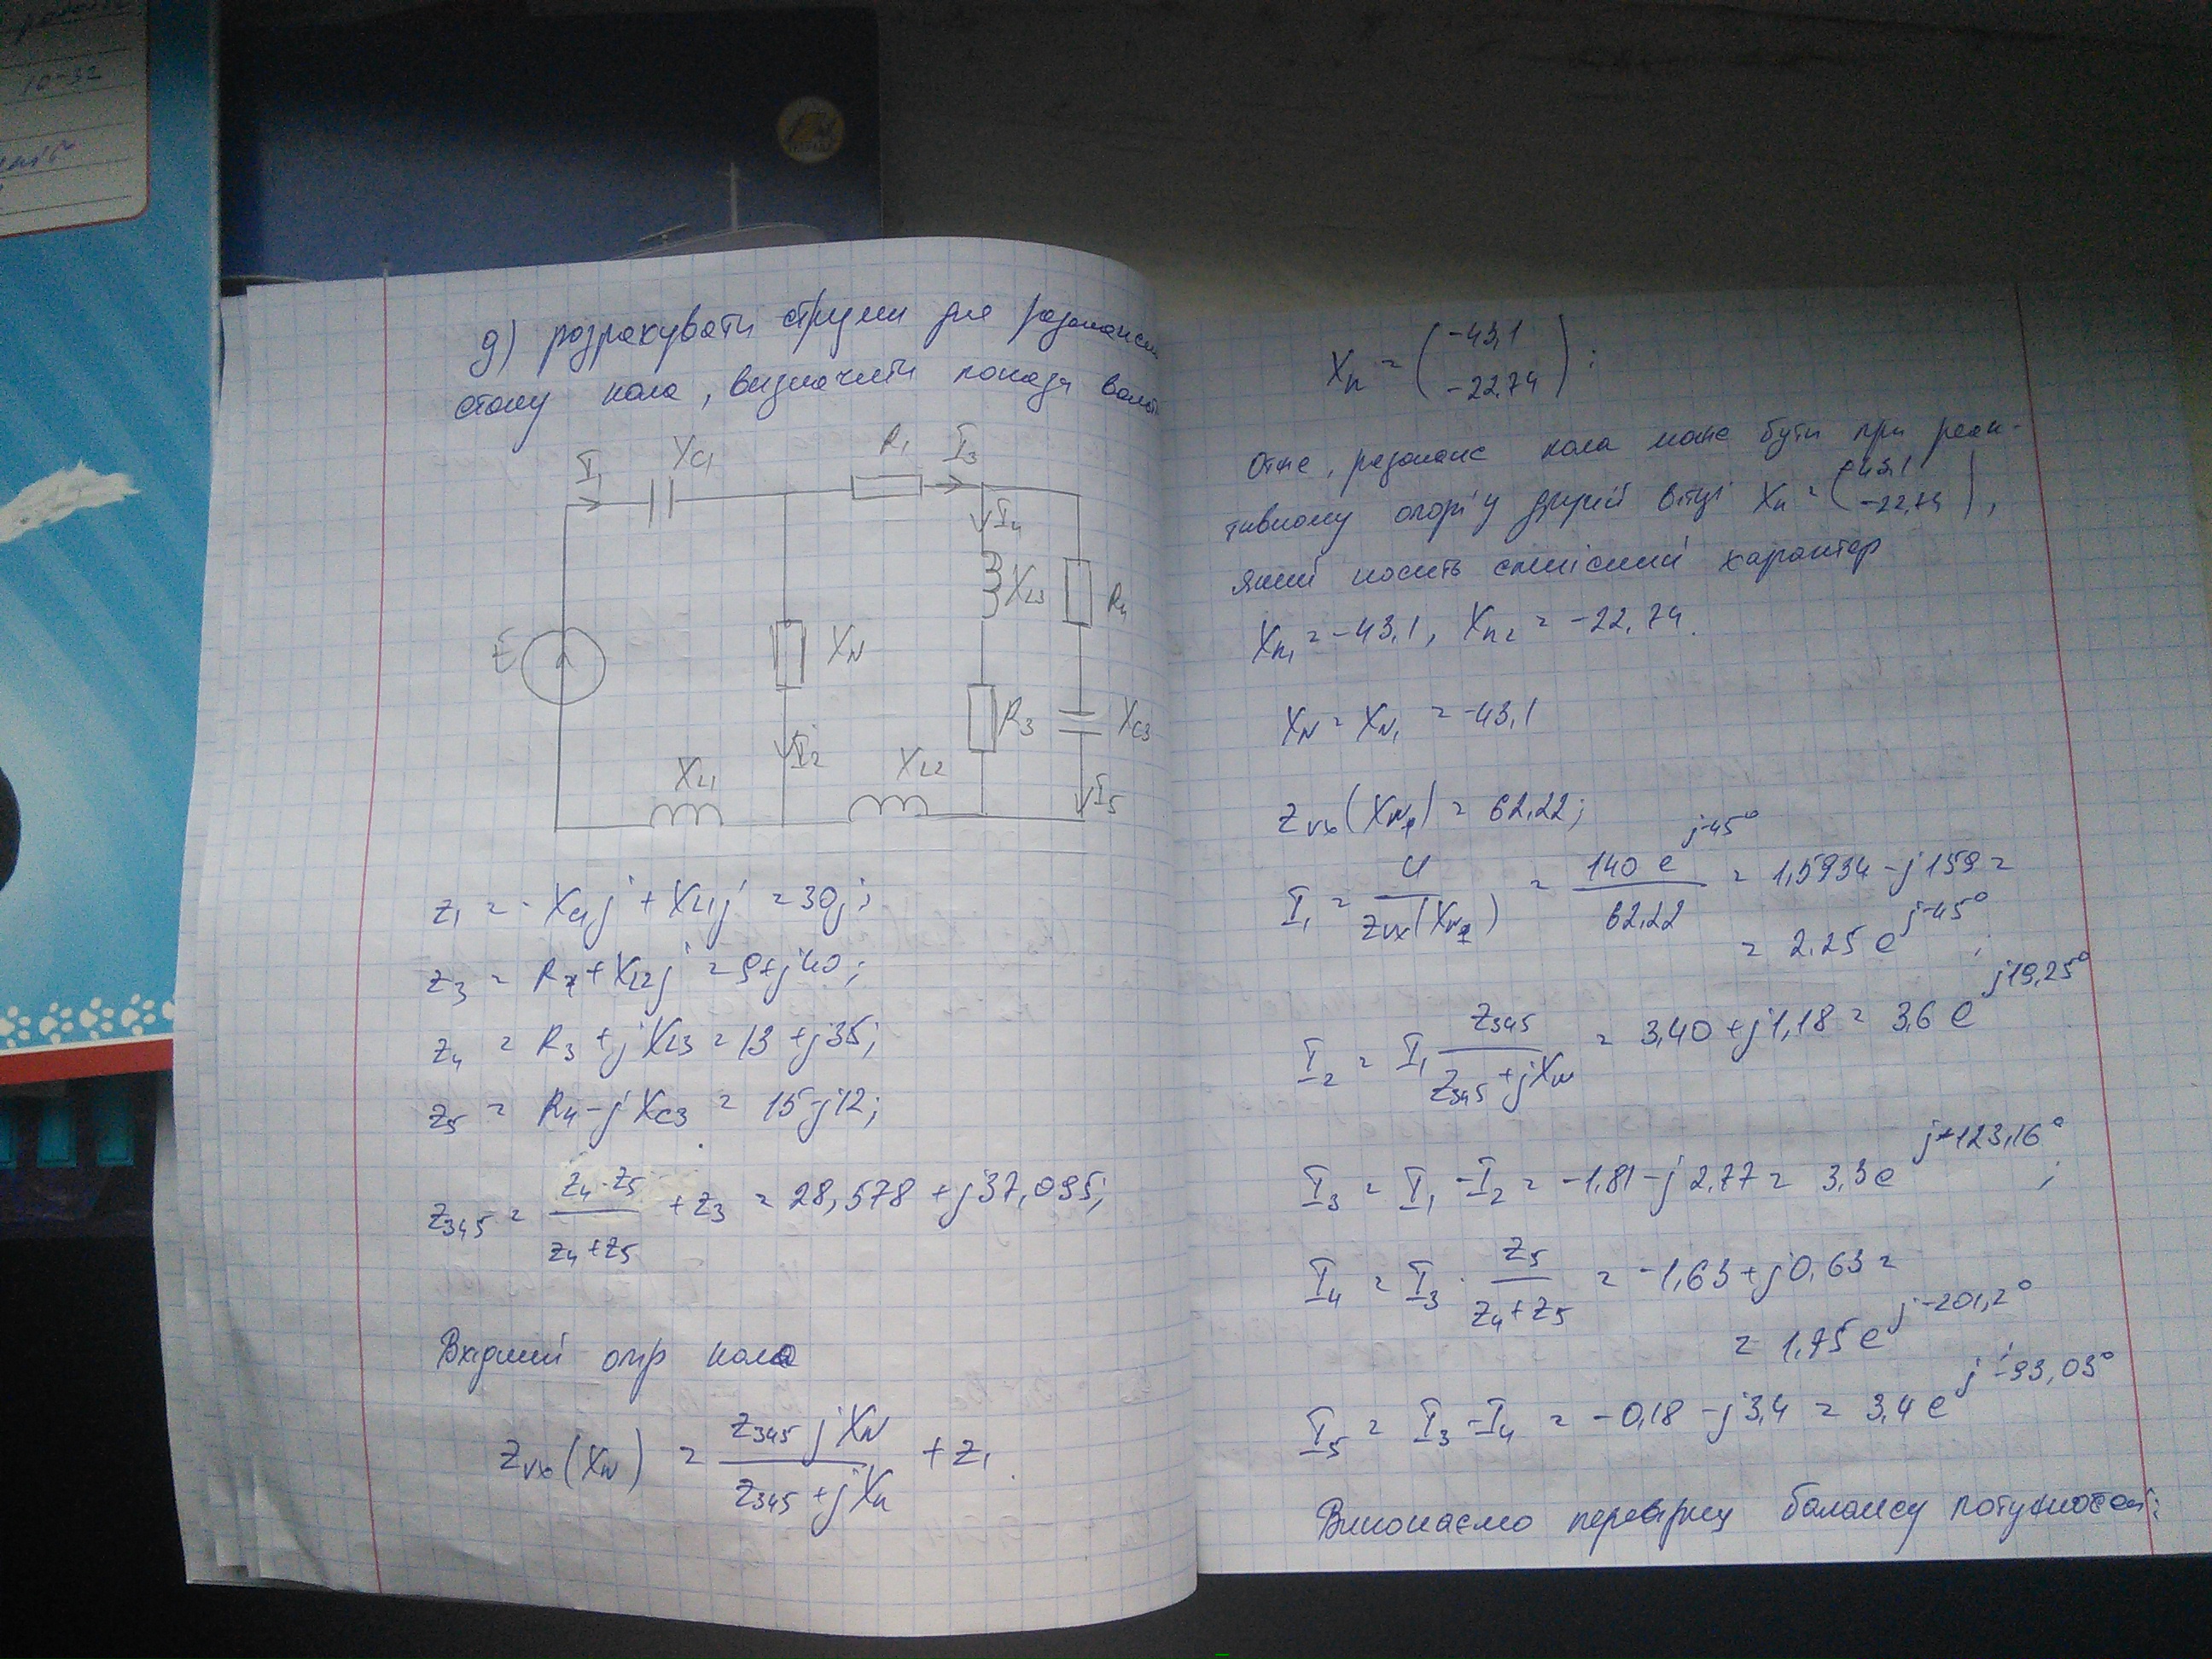 10-32
д) розрахувати струми для резонансн
стану кола, визначити покази вольт
I₁
XC1
R1
I₃
I₄
XL3
R4
E
XN
R3
XC3
I₂
XL1
XL2
I₅
z₁ = -XC1j + XL1j = 30j;
z₃ = R₁ + XL2j = 9+j40;
z₄ = R₃ + jXL3 = 13 + j35;
z₅ = R4 - jXC3 = 15-j12;
z₃₄₅ = z₄·z₅ / z₄+z₅ + z₃ = 28,578 + j37,095;
Вхідний опір кола
Zvx(XN) = z₃₄₅ jXN / z₃₄₅ + jXn + z₁.
Xn = (-43,1 -22,74):
Отже, резонанс кола може бути при реак-
тивному опорі у другій вітці Xn = (-43,1 -22,74),
який носить ємнісний характер
Xn₁ = -43,1, Xn₂ = -22,74.
XN = XN₁ = -43,1
Zvx(XN) = 62,22;
I₁ = U / Zvx(XN) = 140 e^j-45° / 62,22 = 1,5934 - j159 =
= 2,25 e^j-45°;
I₂ = I₁ z₃₄₅ / z₃₄₅+jXN = 3,40 + j1,18 = 3,6 e^j19,25°
I₃ = I₁ - I₂ = -1,81 - j2,77 = 3,3 e^j-123,16°;
I₄ = I₃ · z₅ / z₄+z₅ = -1,63 + j0,63 =
= 1,75 e^j-201,2°;
I₅ = I₃ - I₄ = -0,18 - j3,4 = 3,4 e^j-93,03°
Виконаємо перевірку балансу потужностей: